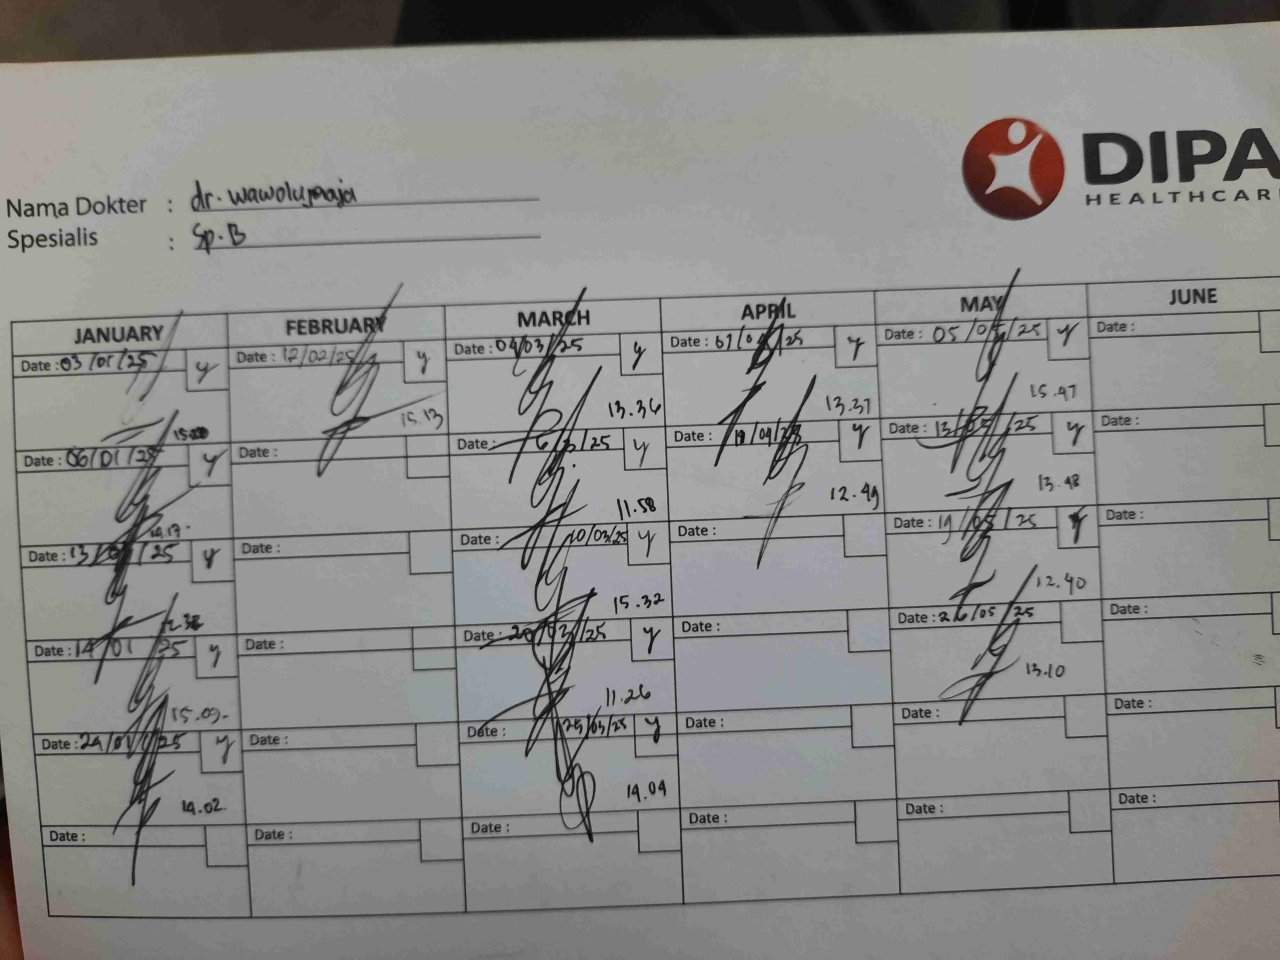 DIPA
HEALTHCAR
Nama Dokter : dr. wawolumaja
Spesialis : Sp.B
JANUARY FEBRUARY MARCH APRIL MAY JUNE
Date : 03/01/25 y Date : 12/02/25 y Date : 04/03/25 y Date : 25 y Date : 05/05/25 y Date :
15.13 13.36 13.37 15.47
Date : 06/01/25 y Date : Date : 25 y Date : y Date : 13/05/25 y Date :
14.17 11.58 12.49 13.48
Date : 13/01/25 y Date : Date : 10/03/25 y Date : Date : 19/05/25 y Date :
15.32 12.40
Date : 14/01 25 y Date : Date : 20/03/25 y Date : Date : 26/05/25 Date :
15.03 11.26 13.10
Date : 25 y Date : Date : 25/03/25 y Date : Date : Date :
14.02 14.04
Date : Date : Date : Date : Date : Date :